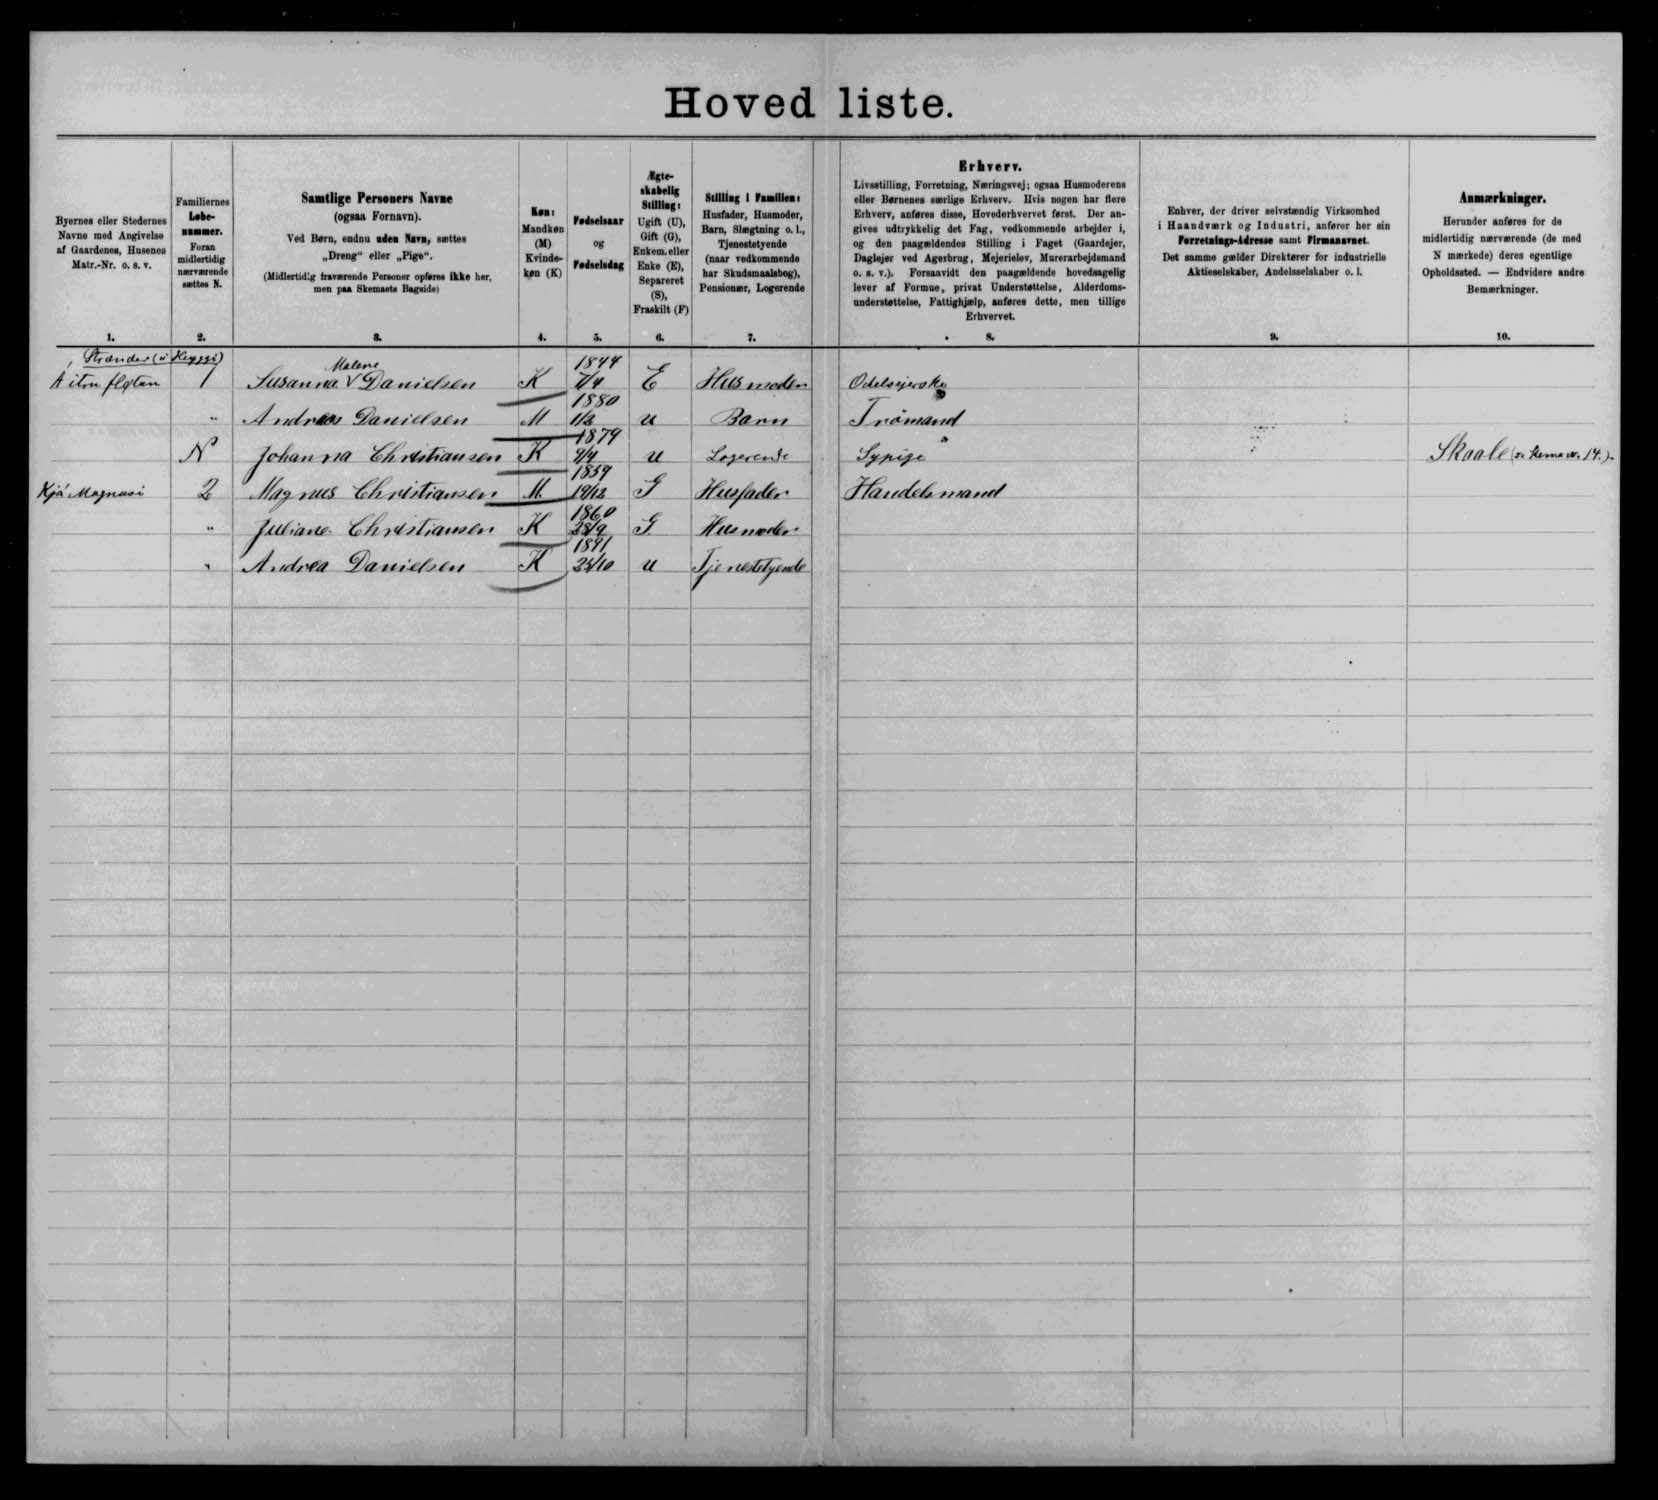 Hoved liste.
Byernes eller Stedernes
Navne med Angivelse
af Gaardenes, Husenes
Matr.-Nr. o. s. v.
1.
Familiernes
Løbe-
nummer.
Foran
midlertidig
nærværende
sættes N.
2.
Samtlige Personers Navne
(ogsaa Fornavn).
Ved Børn, endnu uden Navn, sættes
„Dreng“ eller „Pige“.
(Midlertidig fraværende Personer opføres ikke her,
men paa Skemaets Bagside)
3.
Køn:
Mandkøn
(M)
Kvinde-
køn (K)
4.
Fødselsaar
og
Fødselsdag
5.
Ægte-
skabelig
Stilling:
Ugift (U),
Gift (G),
Enkem. eller
Enke (E),
Separeret
(S),
Fraskilt (F)
6.
Stilling i Familien:
Husfader, Husmoder,
Barn, Slægtning o. l.,
Tjenestetyende
(naar vedkommende
har Skudsmaalsbog),
Pensionær, Logerende
7.
Erhverv.
Livsstilling, Forretning, Næringsvej; ogsaa Husmoderens
eller Børnenes særlige Erhverv. Hvis nogen har flere
Erhverv, anføres disse, Hovederhvervet først. Der an-
gives udtrykkelig det Fag, vedkommende arbejder i,
og den paagældendes Stilling i Faget (Gaardejer,
Daglejer ved Agerbrug, Mejerielev, Murerarbejdsmand
o. s. v.). Forsaavidt den paagældende hovedsagelig
lever af Formue, privat Understøttelse, Alderdoms-
understøttelse, Fattighjælp, anføres dette, men tillige
Erhvervet.
8.
Enhver, der driver selvstændig Virksomhed
i Haandværk og Industri, anfører her sin
Forretnings-Adresse samt Firmanavnet.
Det samme gælder Direktører for industrielle
Aktieselskaber, Andelsselskaber o. l.
9.
Anmærkninger.
Herunder anføres for de
midlertidig nærværende (de med
N mærkede) deres egentlige
Opholdssted. — Endvidere andre
Bemærkninger.
10.
Strænder (i Heyggi)
Malene 1844
Á itru fløtun 1 Susanna V Danielsen K 7/4 E Husmoder Odelsejerske
1880
" Andreas Danielsen M 1/2 U Barn Tromand
1879
N Johanna Christiansen K 9/4 U Logerende Sypige Skaale (14.)
1859
Kjá Magnusi 2 Magnus Christiansen M. 19/12 G Husfader Handelsmand
1860
" Juliane Christiansen K 28/9 G. Husmoder
1891
" Andrea Danielsen K 25/10 U Tjenestetyende